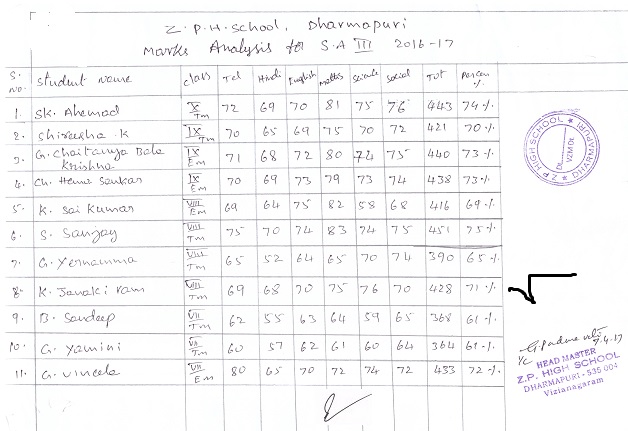 Z.P.H. School, Dharmapuri
Marks Analysis for S.A III 2016-17
S. No. Student Name class Tel Hindi English maths Science Social TOT Percen %
1. SK. Ahemad X Tm 72 69 70 81 75 76 443 74 %
2. Shirisha K IX Tm 70 65 69 75 70 72 421 70 %
3. G. Chaitanya Bala Krishna IX Em 71 68 72 80 74 75 440 73 %
4. Ch. Hema Sankar IX Em 70 69 73 79 73 74 438 73 %
5. K. Sai Kumar VIII Em 69 64 75 82 58 68 416 69 %
6. S. Sanjay VIII Tm 75 70 74 83 74 75 451 75 %
7. G. Yernamma VIII Tm 65 52 64 65 70 74 390 65 %
8. K. Janaki ram VIII Tm 69 68 70 75 76 70 428 71 %
9. B. Sandeep VII Tm 62 55 63 64 59 65 368 61 %
10. G. Yamini VII Tm 60 57 62 61 60 64 364 61 %
11. G. Vineela VII Em 80 65 70 72 74 72 433 72 %
Z.P. HIGH SCHOOL ★ DHARMAPURI ★
7.4.17
HEAD MASTER
Z.P. HIGH SCHOOL
DHARMAPURI - 535 004
Vizianagaram